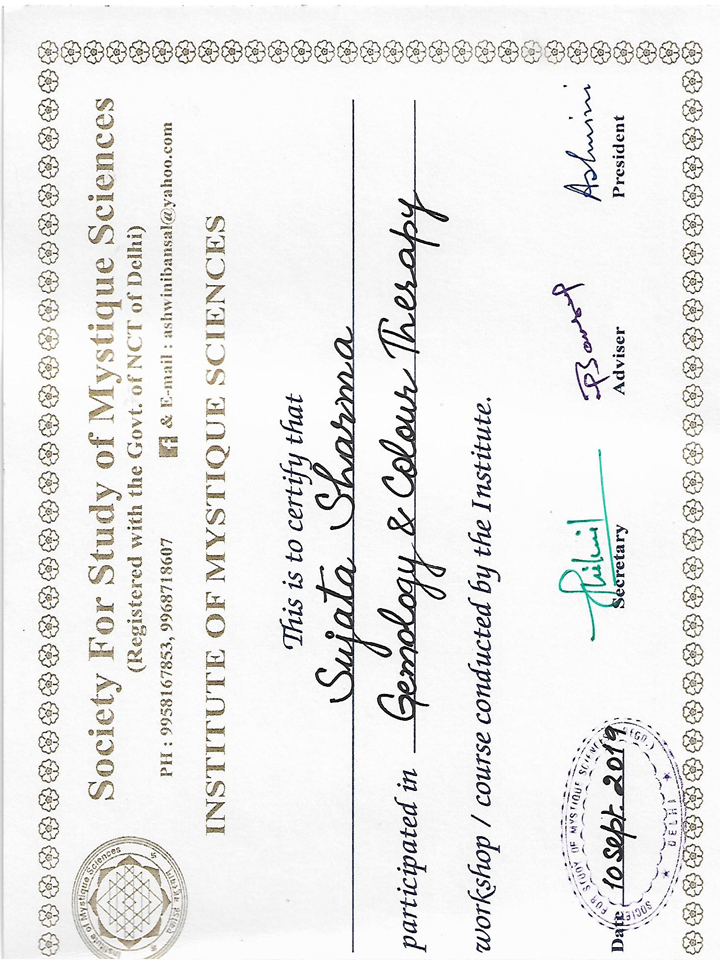 Institute of Mystique Sciences
Society For Study of Mystique Sciences
(Registered with the Govt. of NCT of Delhi)
PH : 9958167853, 9968718607 & E-mail : ashwinibansal@yahoo.com
INSTITUTE OF MYSTIQUE SCIENCES
This is to certify that
Sujata Sharma
participated in Gemology & Colour Therapy
workshop / course conducted by the Institute.
SOCIETY FOR STUDY OF MYSTIQUE SCIENCES (REGD.)
★ DELHI ★
Date 10 Sept. 2019
Secretary
Adviser
Ashwini
President